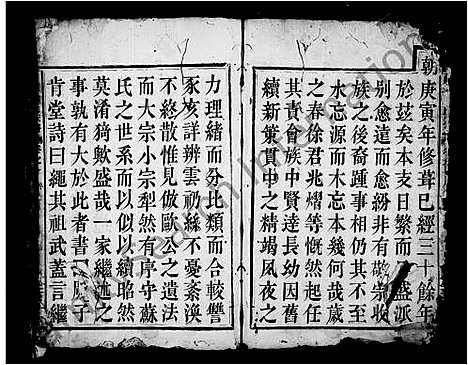 朝庚寅年修葺已經三十餘年
於茲矣本支日繁而 盛派
別愈遠而愈紛非有 崇收
族之後裔踵事相仍其不至
水忘源而木忘本幾何哉歲
之春徐君兆燿等慨然起任
其責會族中賢達長幼因舊
續新彙貫中之精竭夙夜之
力理緒而分比類而合較讐
豕亥詳辨雲礽絲不憂紊渙
不終散惟見倣歐公之遺法
而大宗小宗犁然有序守蘇
氏之世系而以似以續昭然
莫淆猗歟盛哉一家繼述之
事孰有大於此者書 子
肯堂詩曰繩其祖武蓋言繼